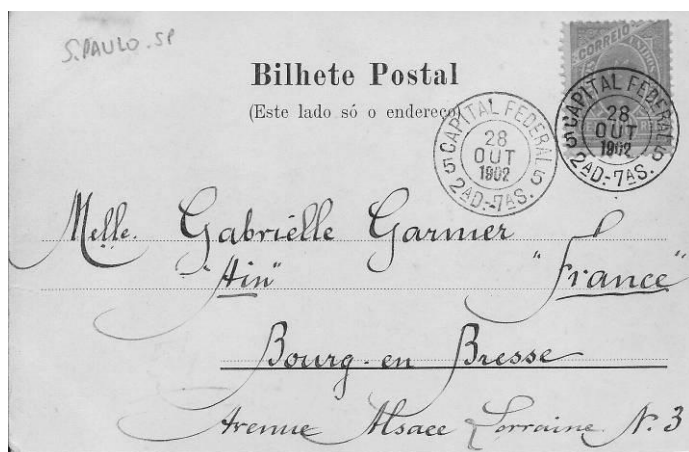 S. PAULO. SP
CORREIO
Bilhete Postal
(Este lado só o endereço)
5 CAPITAL FEDERAL 5
28
OUT
1902
2ª D.-7ª S.
5 CAPITAL FEDERAL 5
28
OUT
1902
2ª D.-7ª S.
Melle. Gabriélle Garnier
"Ain" "France"
Bourg-en Bresse
Avenue Alsace Lorraine N. 3